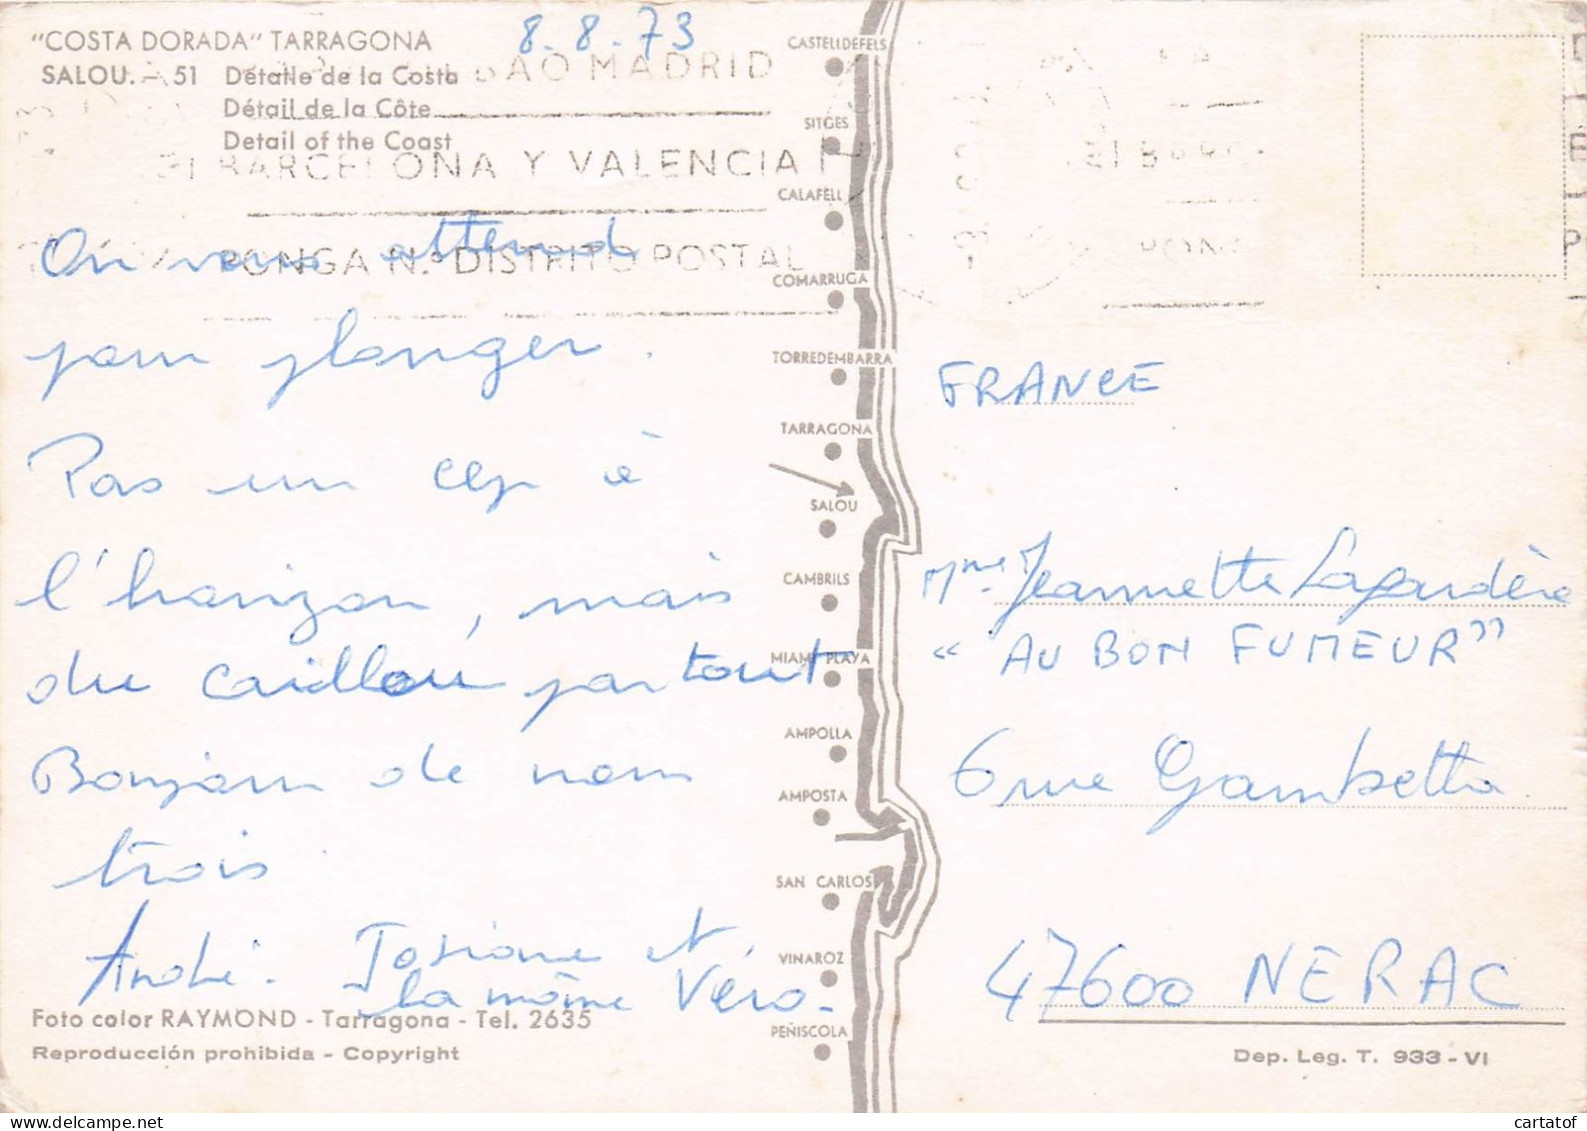 "COSTA DORADA" TARRAGONA
SALOU. - 51 Detalle de la Costa
Détail de la Côte
Detail of the Coast
8.8.73
BAO MADRID
BARCELONA Y VALENCIA
PONGA N.º DISTRITO POSTAL
On vous attend
pour plonger.
Pas un cep à
l'horizon, mais
du caillou partout
Bonjour de nous
trois
André. Josiane et
la môme Véro.
Foto color RAYMOND - Tarragona - Tel. 2635
Reproducción prohibida - Copyright
CASTELLDEFELS
SITGES
CALAFELL
COMARRUGA
TORREDEMBARRA
TARRAGONA
SALOU
CAMBRILS
MIAMI PLAYA
AMPOLLA
AMPOSTA
SAN CARLOS
VINAROZ
PEÑISCOLA
FRANCE
Mme Jeannette Lagardère
"AU BON FUMEUR"
6 rue Gambetta
47600 NERAC
Dep. Leg. T. 933 - VI
cartatof